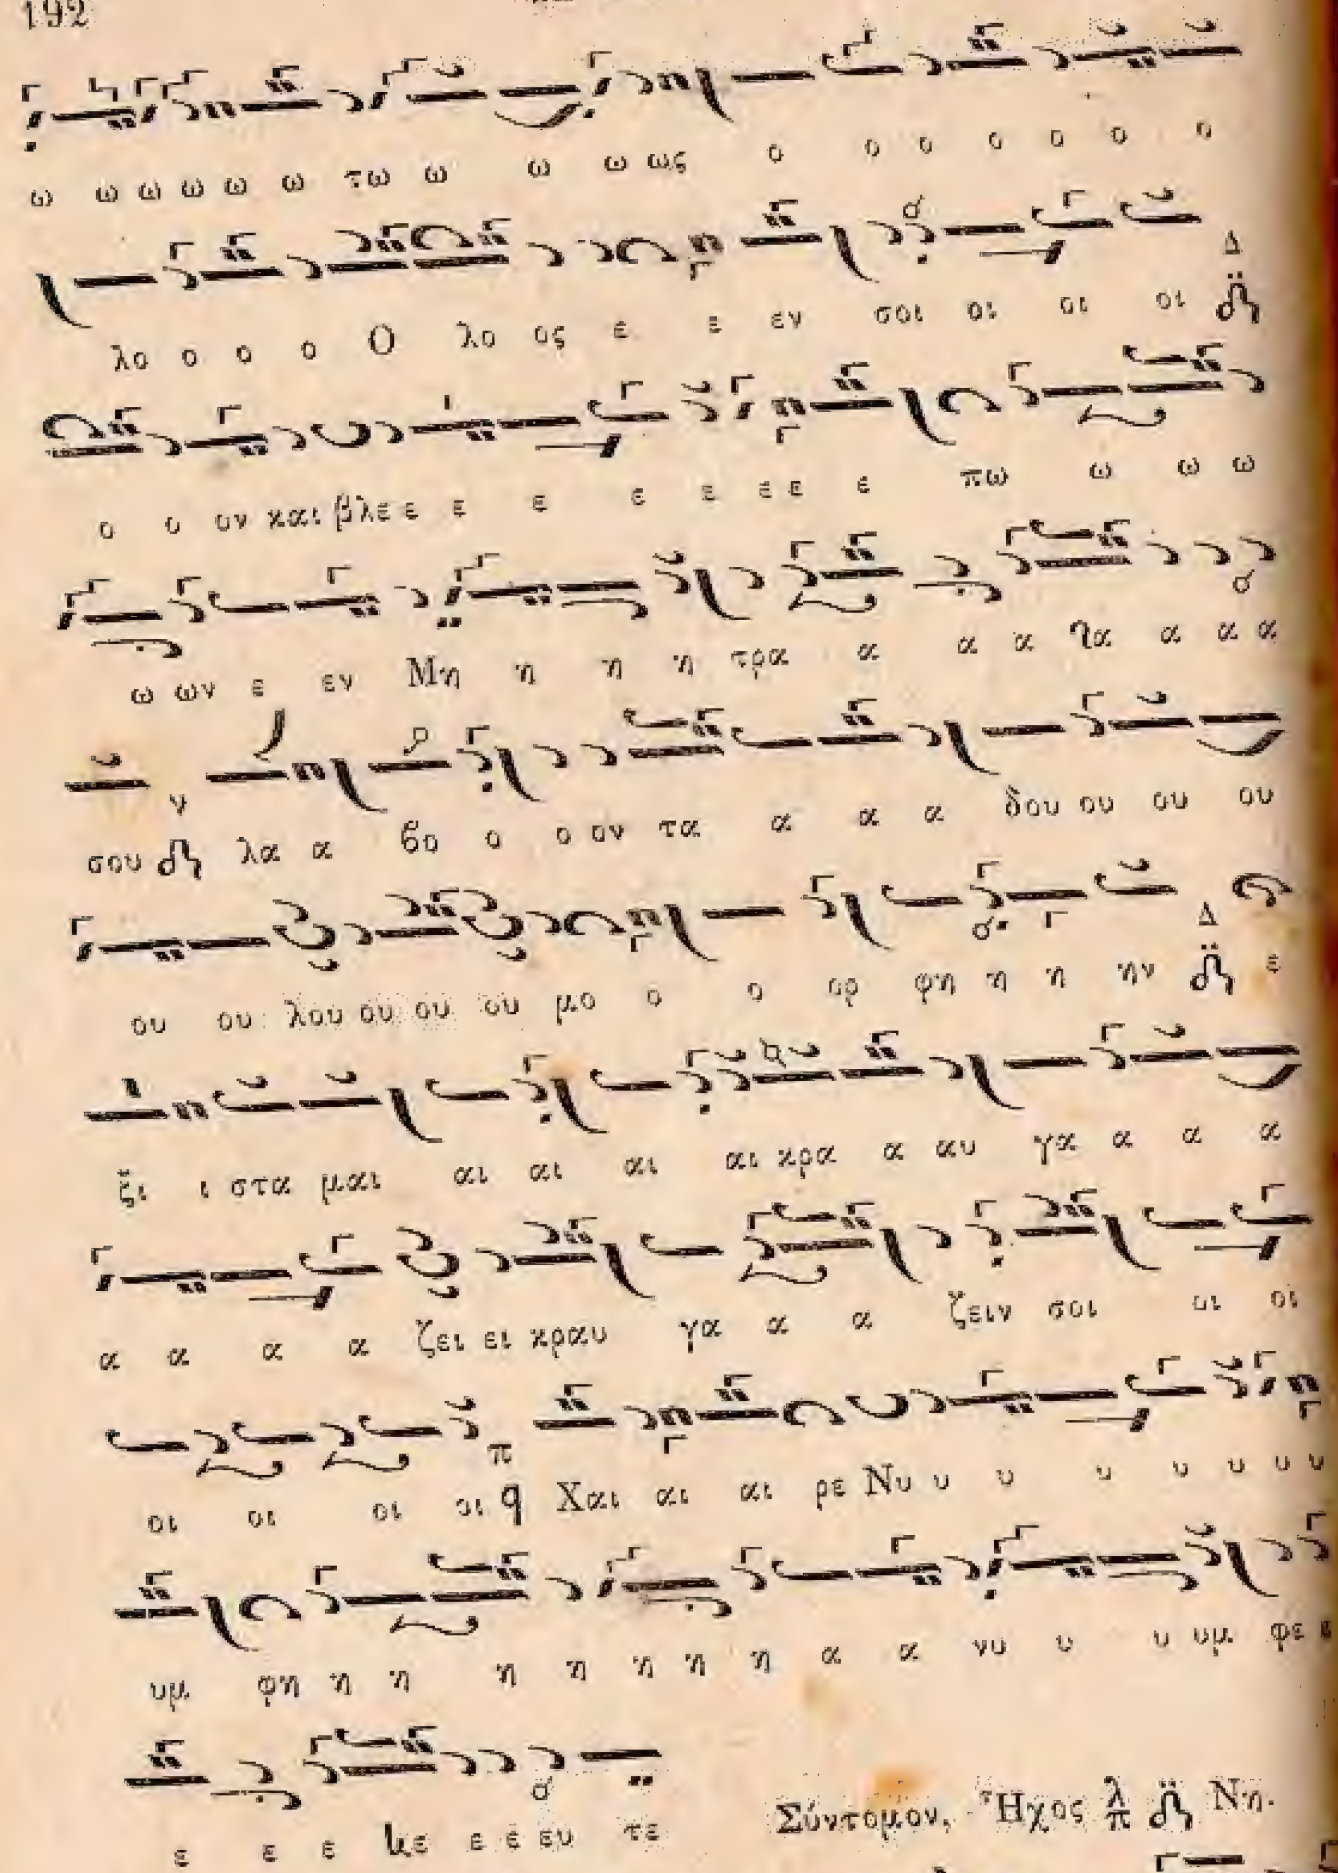 192
ω ω ω ω ω ω τω ω ω ω ως ο ο ο ο ο ο ο
λο ο ο ο Ο λο ος ε ε εν σοι οι οι οι Δ
ο ο ον και βλε ε ε ε ε ε ε ε ε ε πω ω ω ω
ω ων ε εν Μη η η η τρα α α α α α α
σου ν λα α βο ο ο ον τα α α α δου ου ου ου
ου ου λου ου ου ου μο ο ο ορ φη η η ην Δ ε
ξι ι στα μαι αι αι αι αι κρα α αυ γα α α α
α α α α ζει ει κραυ γα α α ζειν σοι οι οι
οι οι οι οι π q Χαι αι αι ρε Νυ υ υ υ υ υ υ υ
υμ φη η η η η η η η α α νυ υ υ υμ φε ε
ε ε ε ε ε ευ τε
Σύντομον, Ἦχος λ π Νη.